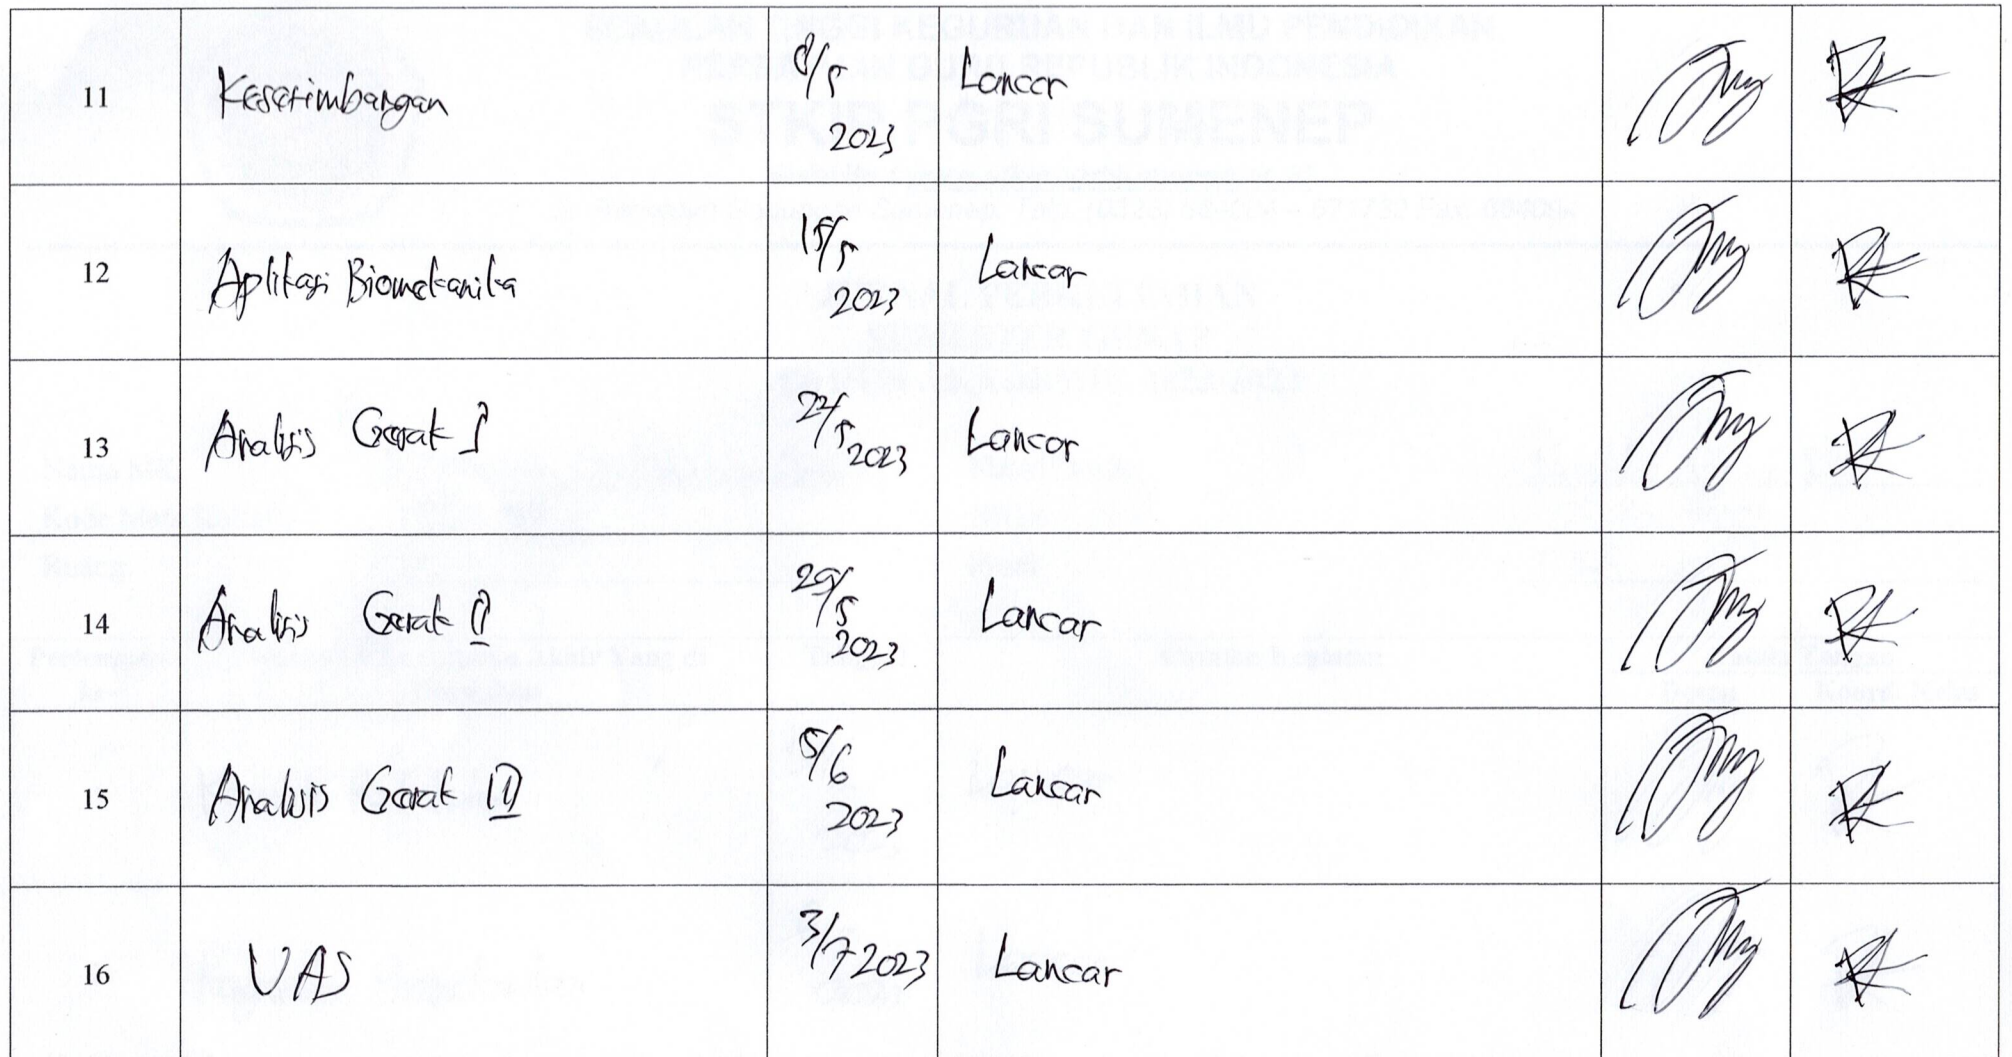 11 Keseimbangan 8/5 2023 Lancar
12 Aplikasi Biomekanika 15/5 2023 Lancar
13 Analisis Gerak I 22/5 2023 Lancar
14 Analisis Gerak II 29/5 2023 Lancar
15 Analisis Gerak III 5/6 2023 Lancar
16 UAS 3/7 2023 Lancar